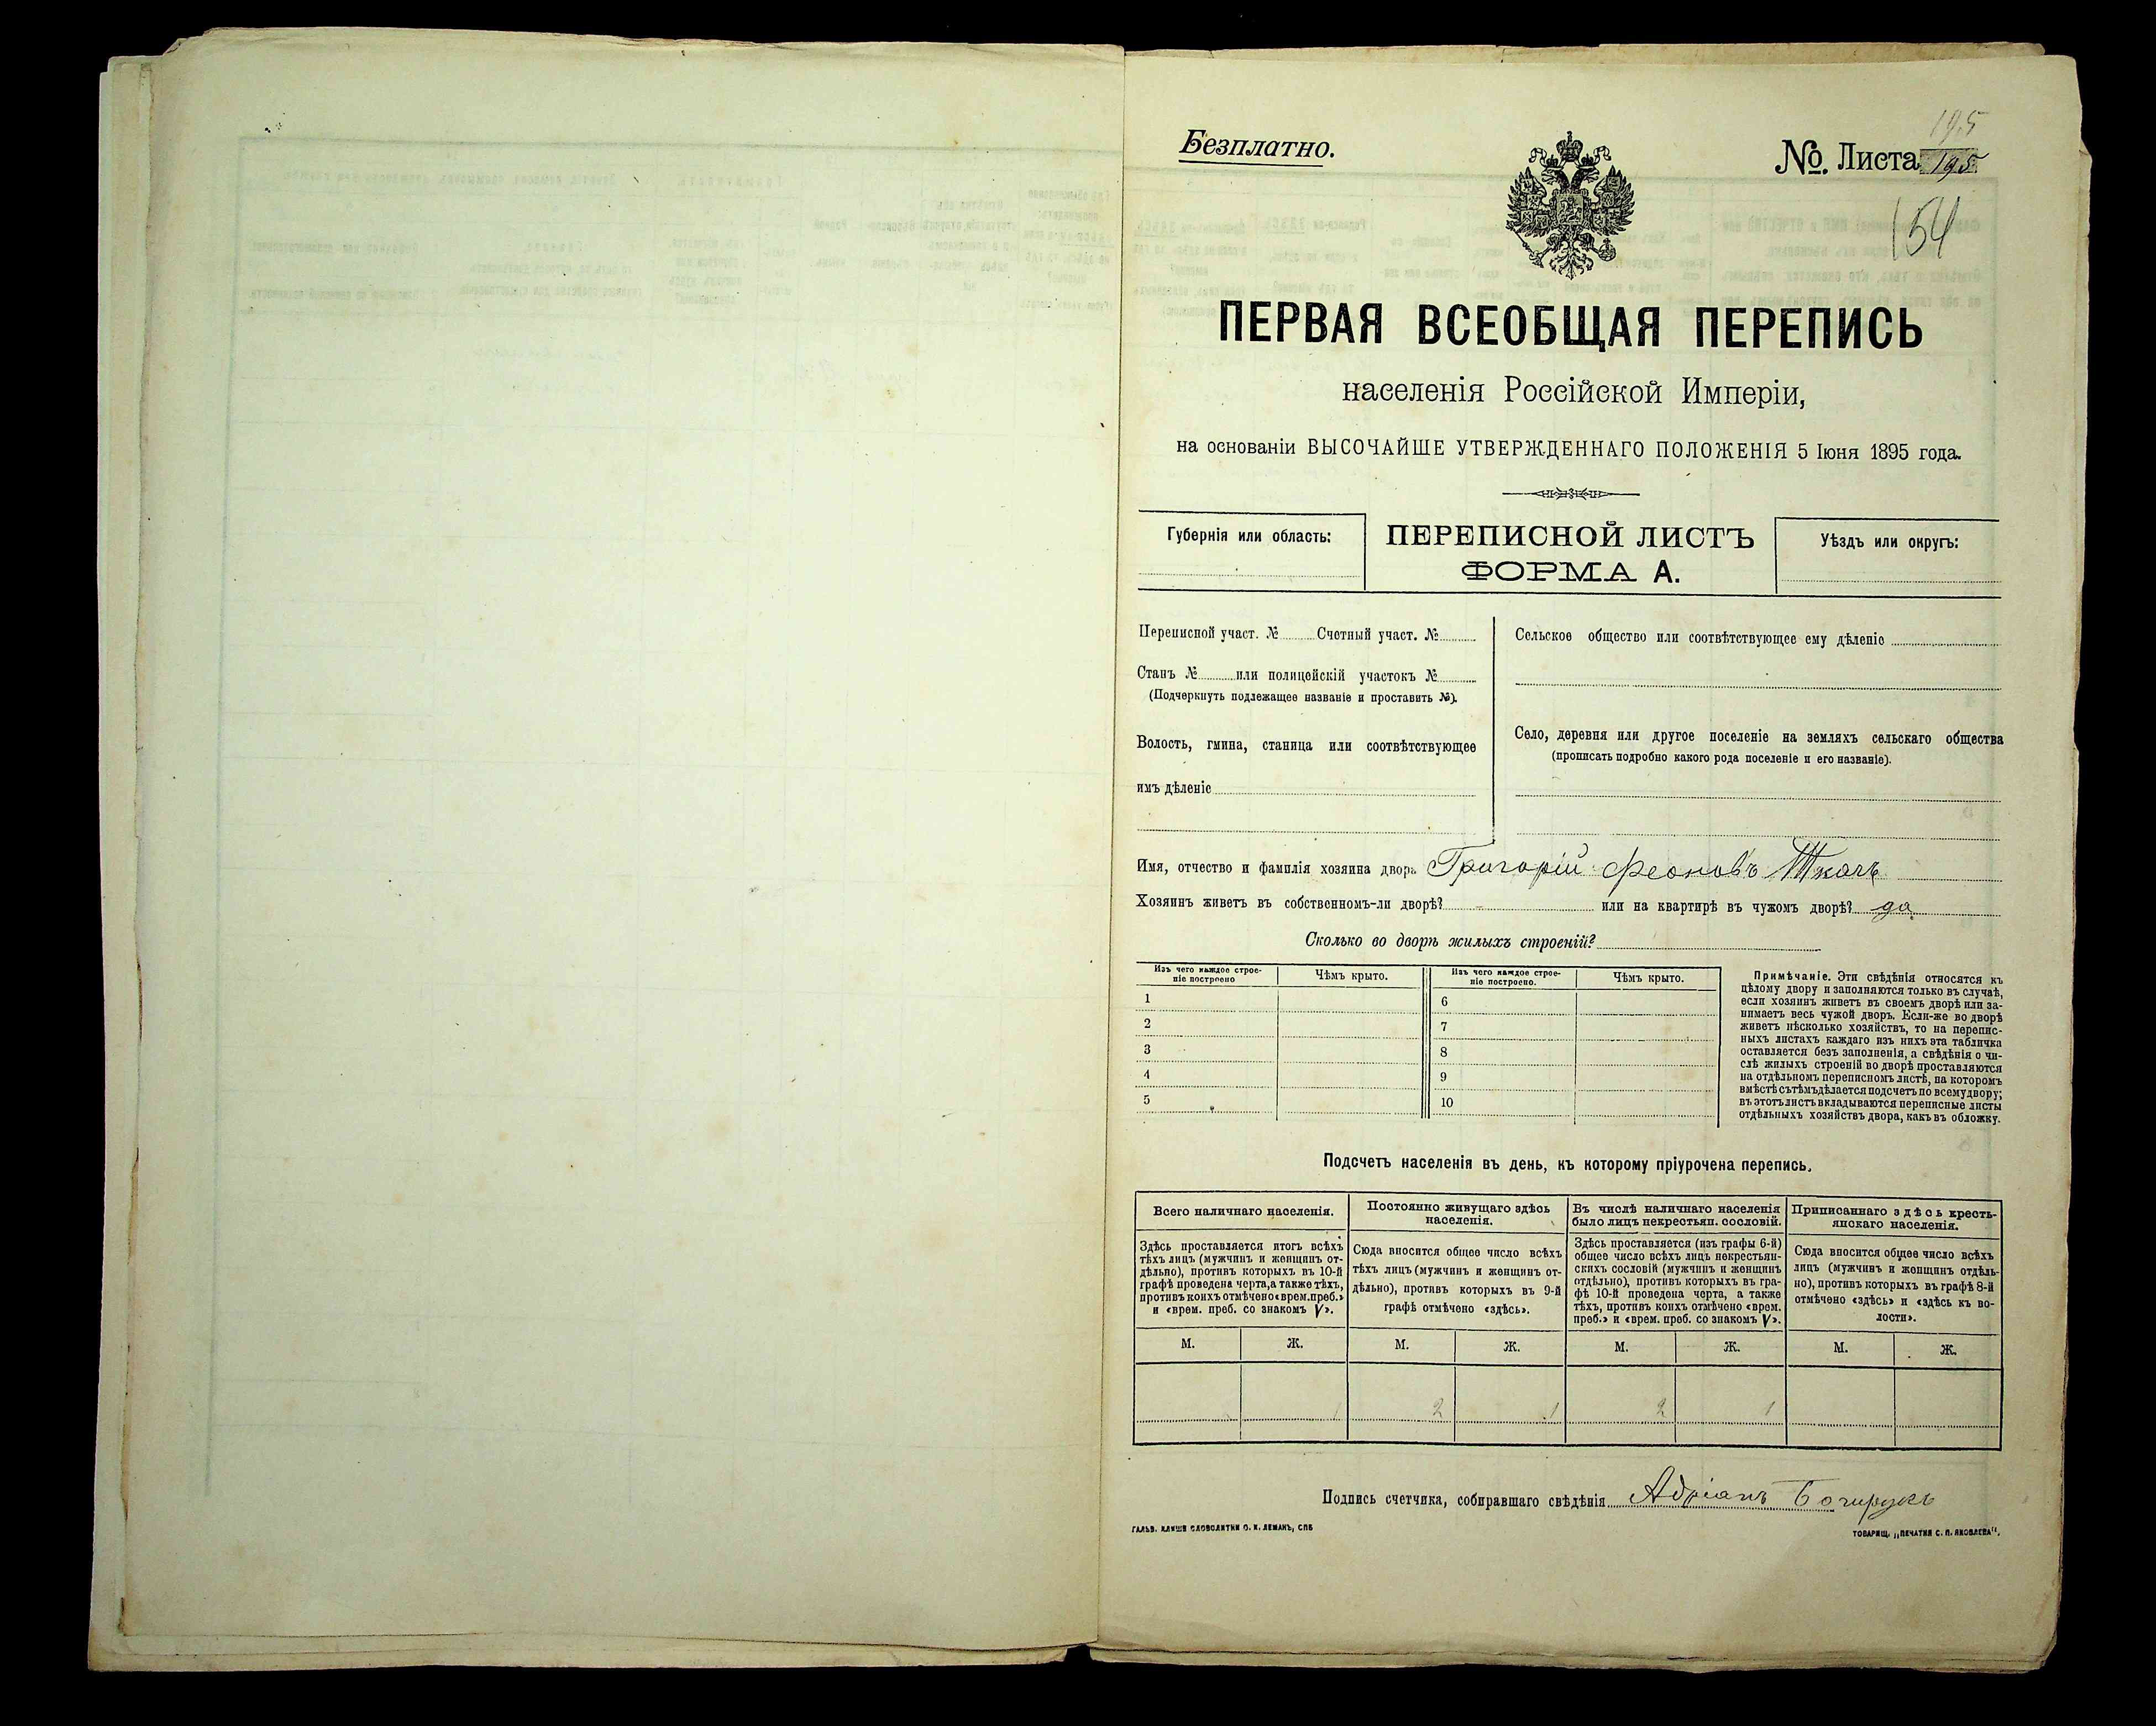 195
Безплатно.
№ Листа 195
154
ПЕРВАЯ ВСЕОБЩАЯ ПЕРЕПИСЬ
населенія Россійской Имперіи,
на основаніи ВЫСОЧАЙШЕ УТВЕРЖДЕННАГО ПОЛОЖЕНІЯ 5 Іюня 1895 года.
Губернія или область:
ПЕРЕПИСНОЙ ЛИСТЪ
ФОРМА А.
Уѣздъ или округъ:
Переписной участ. № Счетный участ. №
Станъ № или полицейскій участокъ №
(Подчеркнуть подлежащее названіе и проставить №).
Волость, гмина, станица или соотвѣтствующее
имъ дѣленіе
Сельское общество или соотвѣтствующее ему дѣленіе
Село, деревня или другое поселеніе на земляхъ сельскаго общества
(прописать подробно какого рода поселеніе и его названіе).
Имя, отчество и фамилія хозяина двора Григорій Феоновъ Ткачъ
Хозяинъ живетъ въ собственномъ-ли дворѣ? - или на квартирѣ въ чужомъ дворѣ? да
Сколько во дворѣ жилыхъ строеній?
Изъ чего каждое строе-
ніе построено
Чѣмъ крыто.
Изъ чего каждое строе-
ніе построено.
Чѣмъ крыто.
1 6
2 7
3 8
4 9
5 10
Примѣчаніе. Эти свѣдѣнія относятся къ
цѣлому двору и заполняются только въ случаѣ,
если хозяинъ живетъ въ своемъ дворѣ или за-
нимаетъ весь чужой дворъ. Если-же во дворѣ
живетъ нѣсколько хозяйствъ, то на перепис-
ныхъ листахъ каждаго изъ нихъ эта табличка
оставляется безъ заполненія, а свѣдѣнія о чи-
слѣ жилыхъ строеній во дворѣ проставляются
на отдѣльномъ переписномъ листѣ, на которомъ
вмѣстѣ съ тѣмъ дѣлается подсчетъ по всему двору;
въ этотъ листъ вкладываются переписные листы
отдѣльныхъ хозяйствъ двора, какъ въ обложку.
Подсчетъ населенія въ день, къ которому пріурочена перепись.
Всего наличнаго населенія.
Здѣсь проставляется итогъ всѣхъ
тѣхъ лицъ (мужчинъ и женщинъ от-
дѣльно), противъ которыхъ въ 10-й
графѣ проведена черта, а также тѣхъ,
противъ коихъ отмѣчено «врем. преб.»
и «врем. преб. со знакомъ V».
Постоянно живущаго здѣсь
населенія.
Сюда вносится общее число всѣхъ
тѣхъ лицъ (мужчинъ и женщинъ от-
дѣльно), противъ которыхъ въ 9-й
графѣ отмѣчено «здѣсь».
Въ числѣ наличнаго населенія
было лицъ некрестьян. сословій.
Здѣсь проставляется (изъ графы 6-й)
общее число всѣхъ лицъ некрестьян-
скихъ сословій (мужчинъ и женщинъ
отдѣльно), противъ которыхъ въ гра-
фѣ 10-й проведена черта, а также
тѣхъ, противъ коихъ отмѣчено «врем.
преб.» и «врем. преб. со знакомъ V».
Приписаннаго здѣсь кресть-
янскаго населенія.
Сюда вносится общее число всѣхъ
лицъ (мужчинъ и женщинъ отдѣль-
но), противъ которыхъ въ графѣ 8-й
отмѣчено «здѣсь» и «здѣсь къ во-
лости».
М. Ж. М. Ж. М. Ж. М. Ж.
1 2 1 2 1
Подпись счетчика, собиравшаго свѣдѣнія Адріанъ
ГАЛЬВ. КЛИШЕ СЛОВОЛИТНИ О. И. ЛЕМАНЪ, СПБ
ТОВАРИЩ. „ПЕЧАТНЯ С. П. ЯКОВЛЕВА".